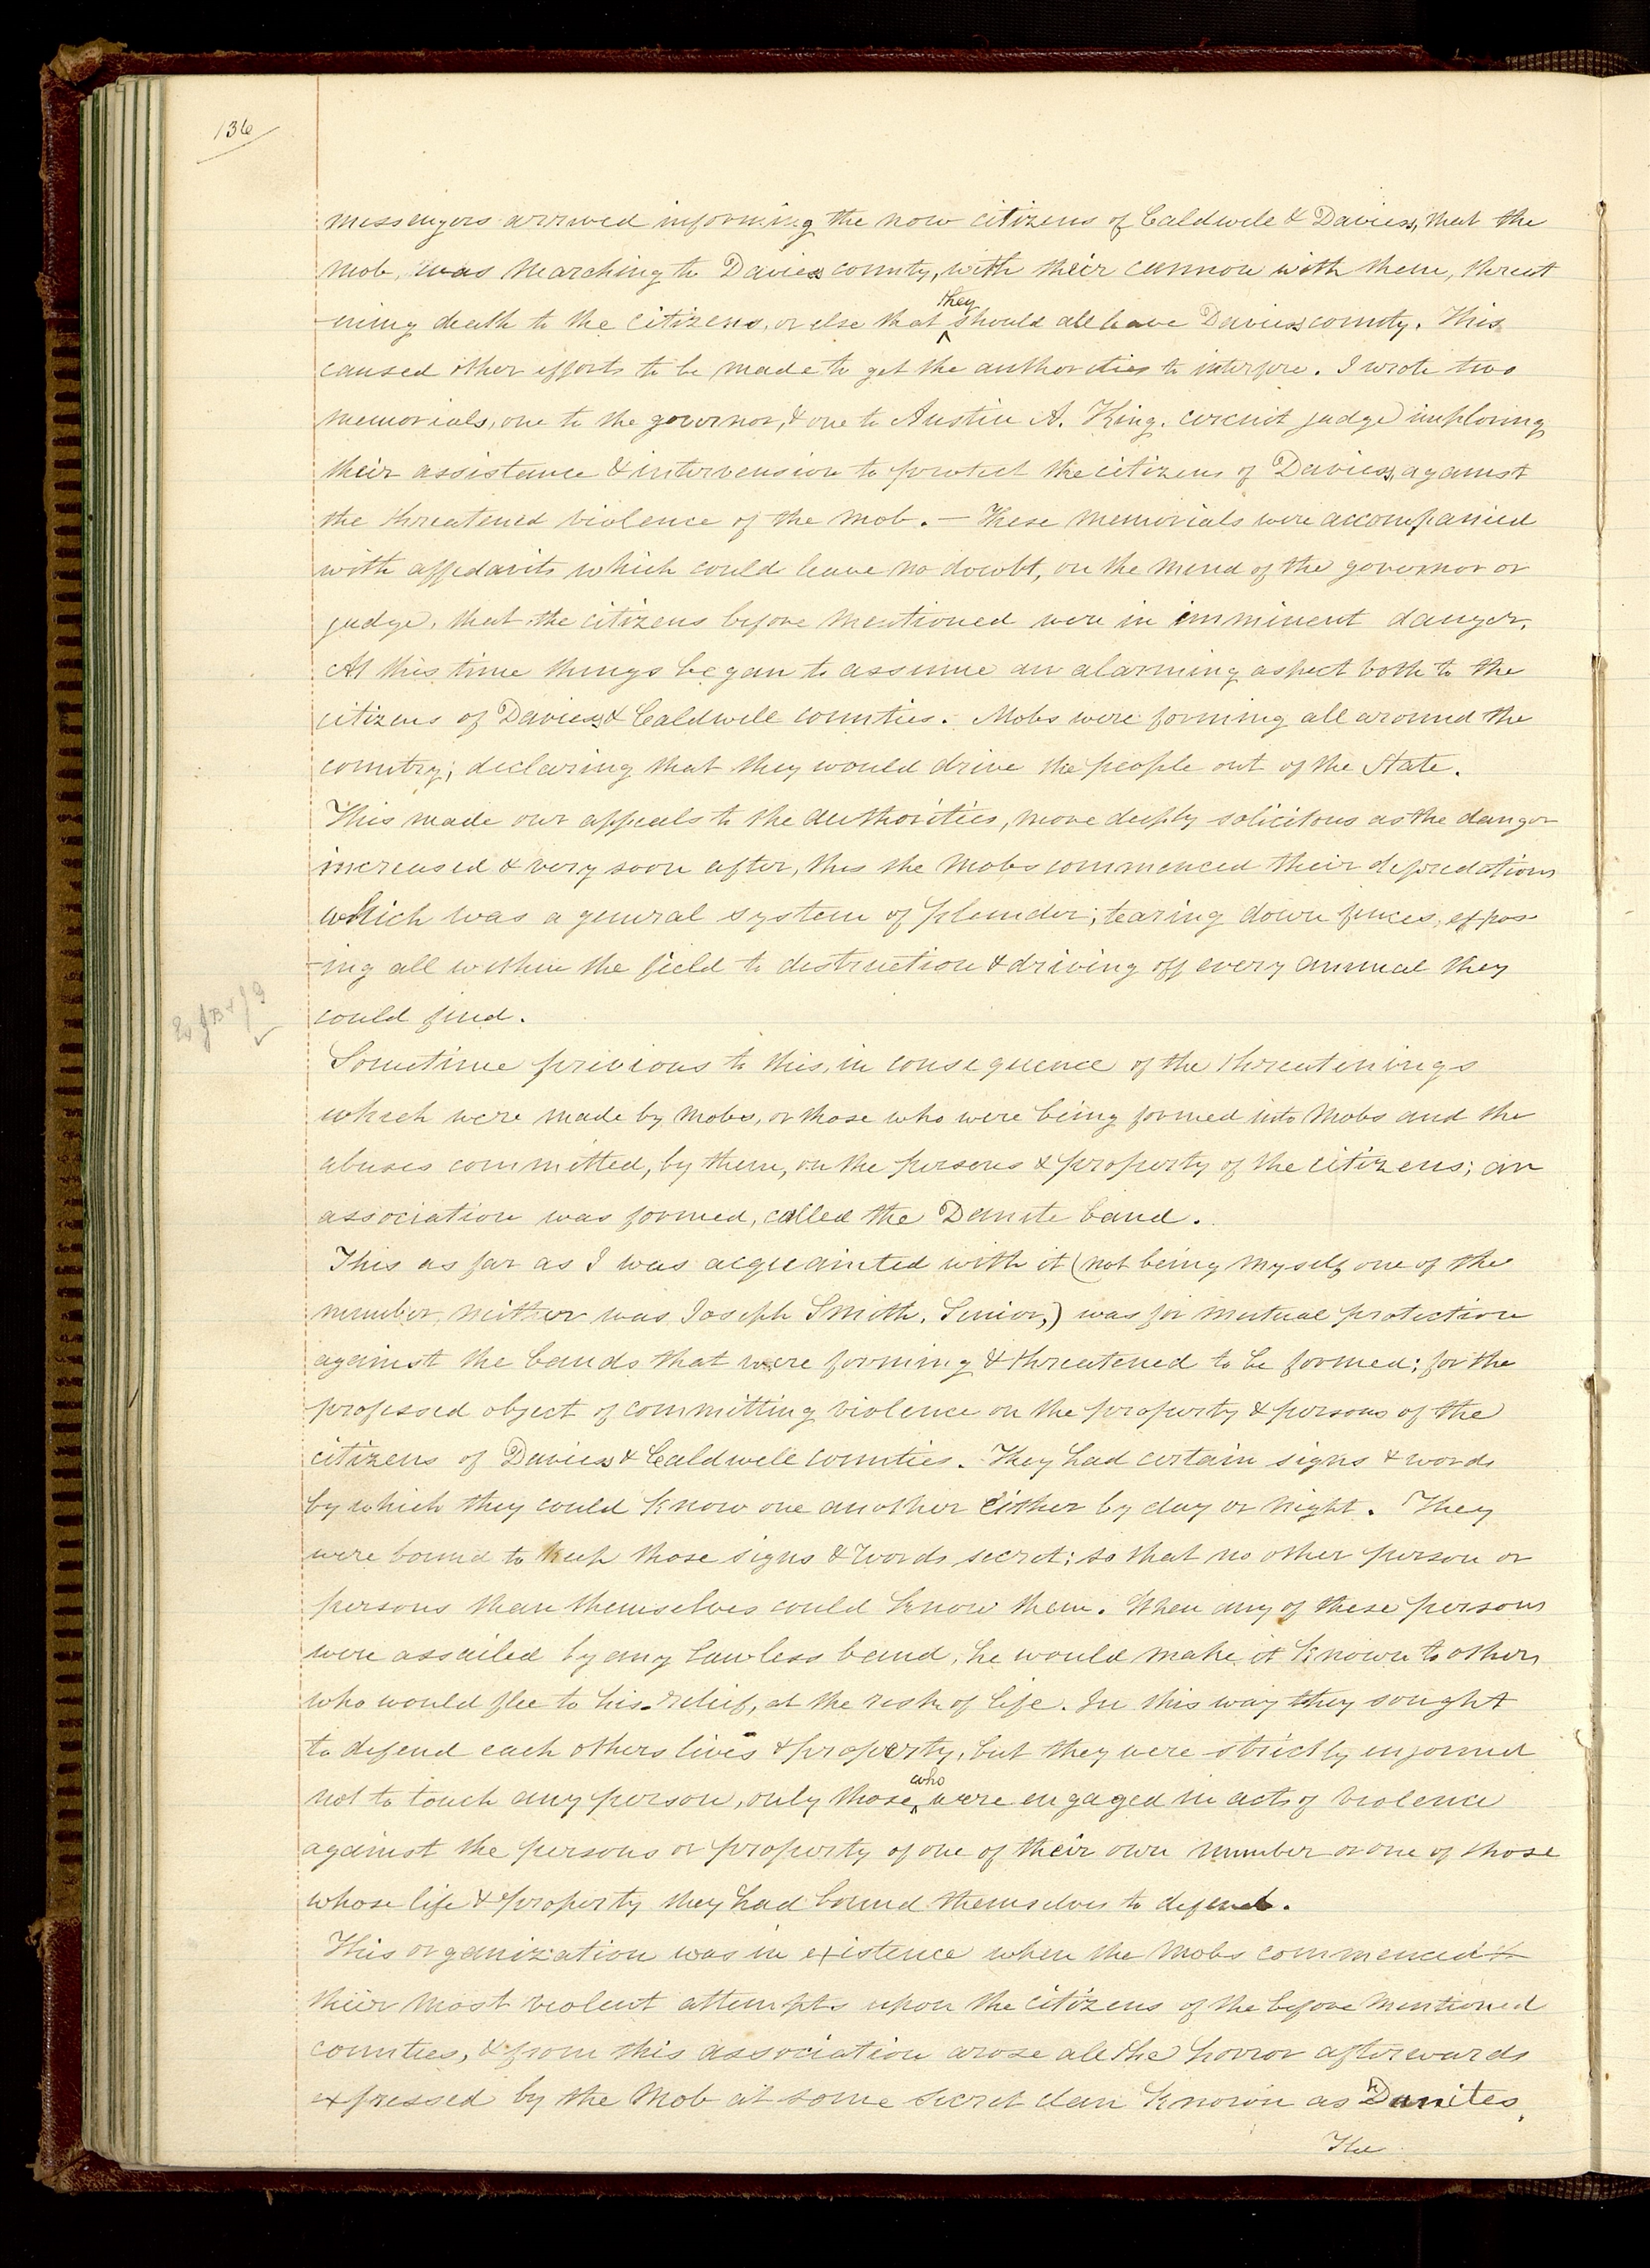 136
messengers arrived informing the now citizens of Caldwell & Daviess, that the
mob, was marching to Daviess county, with their cannon with them, threat
-ning death to the citizens, or else that they should all leave Daviess county. This
caused other efforts to be made to get the authorities to interfere. I wrote two
memorials, one to the governor, & one to Austin A. King. circuit judge imploring
their assistance & intervension to protect the citizens of Daviess, against
the threatened violence of the mob. — These memorials were accompanied
with affidavits which could leave no doubt, on the mind of the governor or
judge, that the citizens before mentioned were in imminent danger.
At this time things began to assume an alarming aspect both to the
citizens of Daviess & Caldwell counties. Mobs were forming all around the
country; declaring that they would drive the people out of the State.
This made our appeals to the authorities, more deeply solicitous as the danger
increased & very soon after, this the mobs commenced their depredations
which was a general system of plunder; tearing down fences, expos
-ing all within the field to destruction & driving off every animal they
could find.
Sometime previous to this, in consequence of the threatenings
which were made by mobs, or those who were being formed into mobs and the
abuses committed, by them, on the persons & property of the citizens; an
association was formed, called the Danite band.
This as far as I was acquainted with it (not being myself one of the
number, neither was Joseph Smith, Senior,) was for mutual protection
against the bands that were forming & threatened to be formed; for the
professed object of committing violence on the property & persons of the
citizens of Daviess & Caldwell counties. They had certain signs & words
by which they could know one another either by day or night. They
were bound to keep those signs & words secret; so that no other person or
persons than themselves could know them. When any of these persons
were assailed by any lawless band, he would make it known to others
who would flee to his relief, at the risk of life. In this way they sought
to defend each others lives & property, but they were strictly enjoined
not to touch any person, only those who were engaged in acts of violence
against the persons or property of one of their own number or one of those
whose life & property they had bound themselves to defend.
This organization was in existence when the mobs commenced
their most violent attempts upon the citizens of the before mentioned
counties, & from this association arose all the horror afterwards
expressed by the mob at some secret clan known as Danites.
The